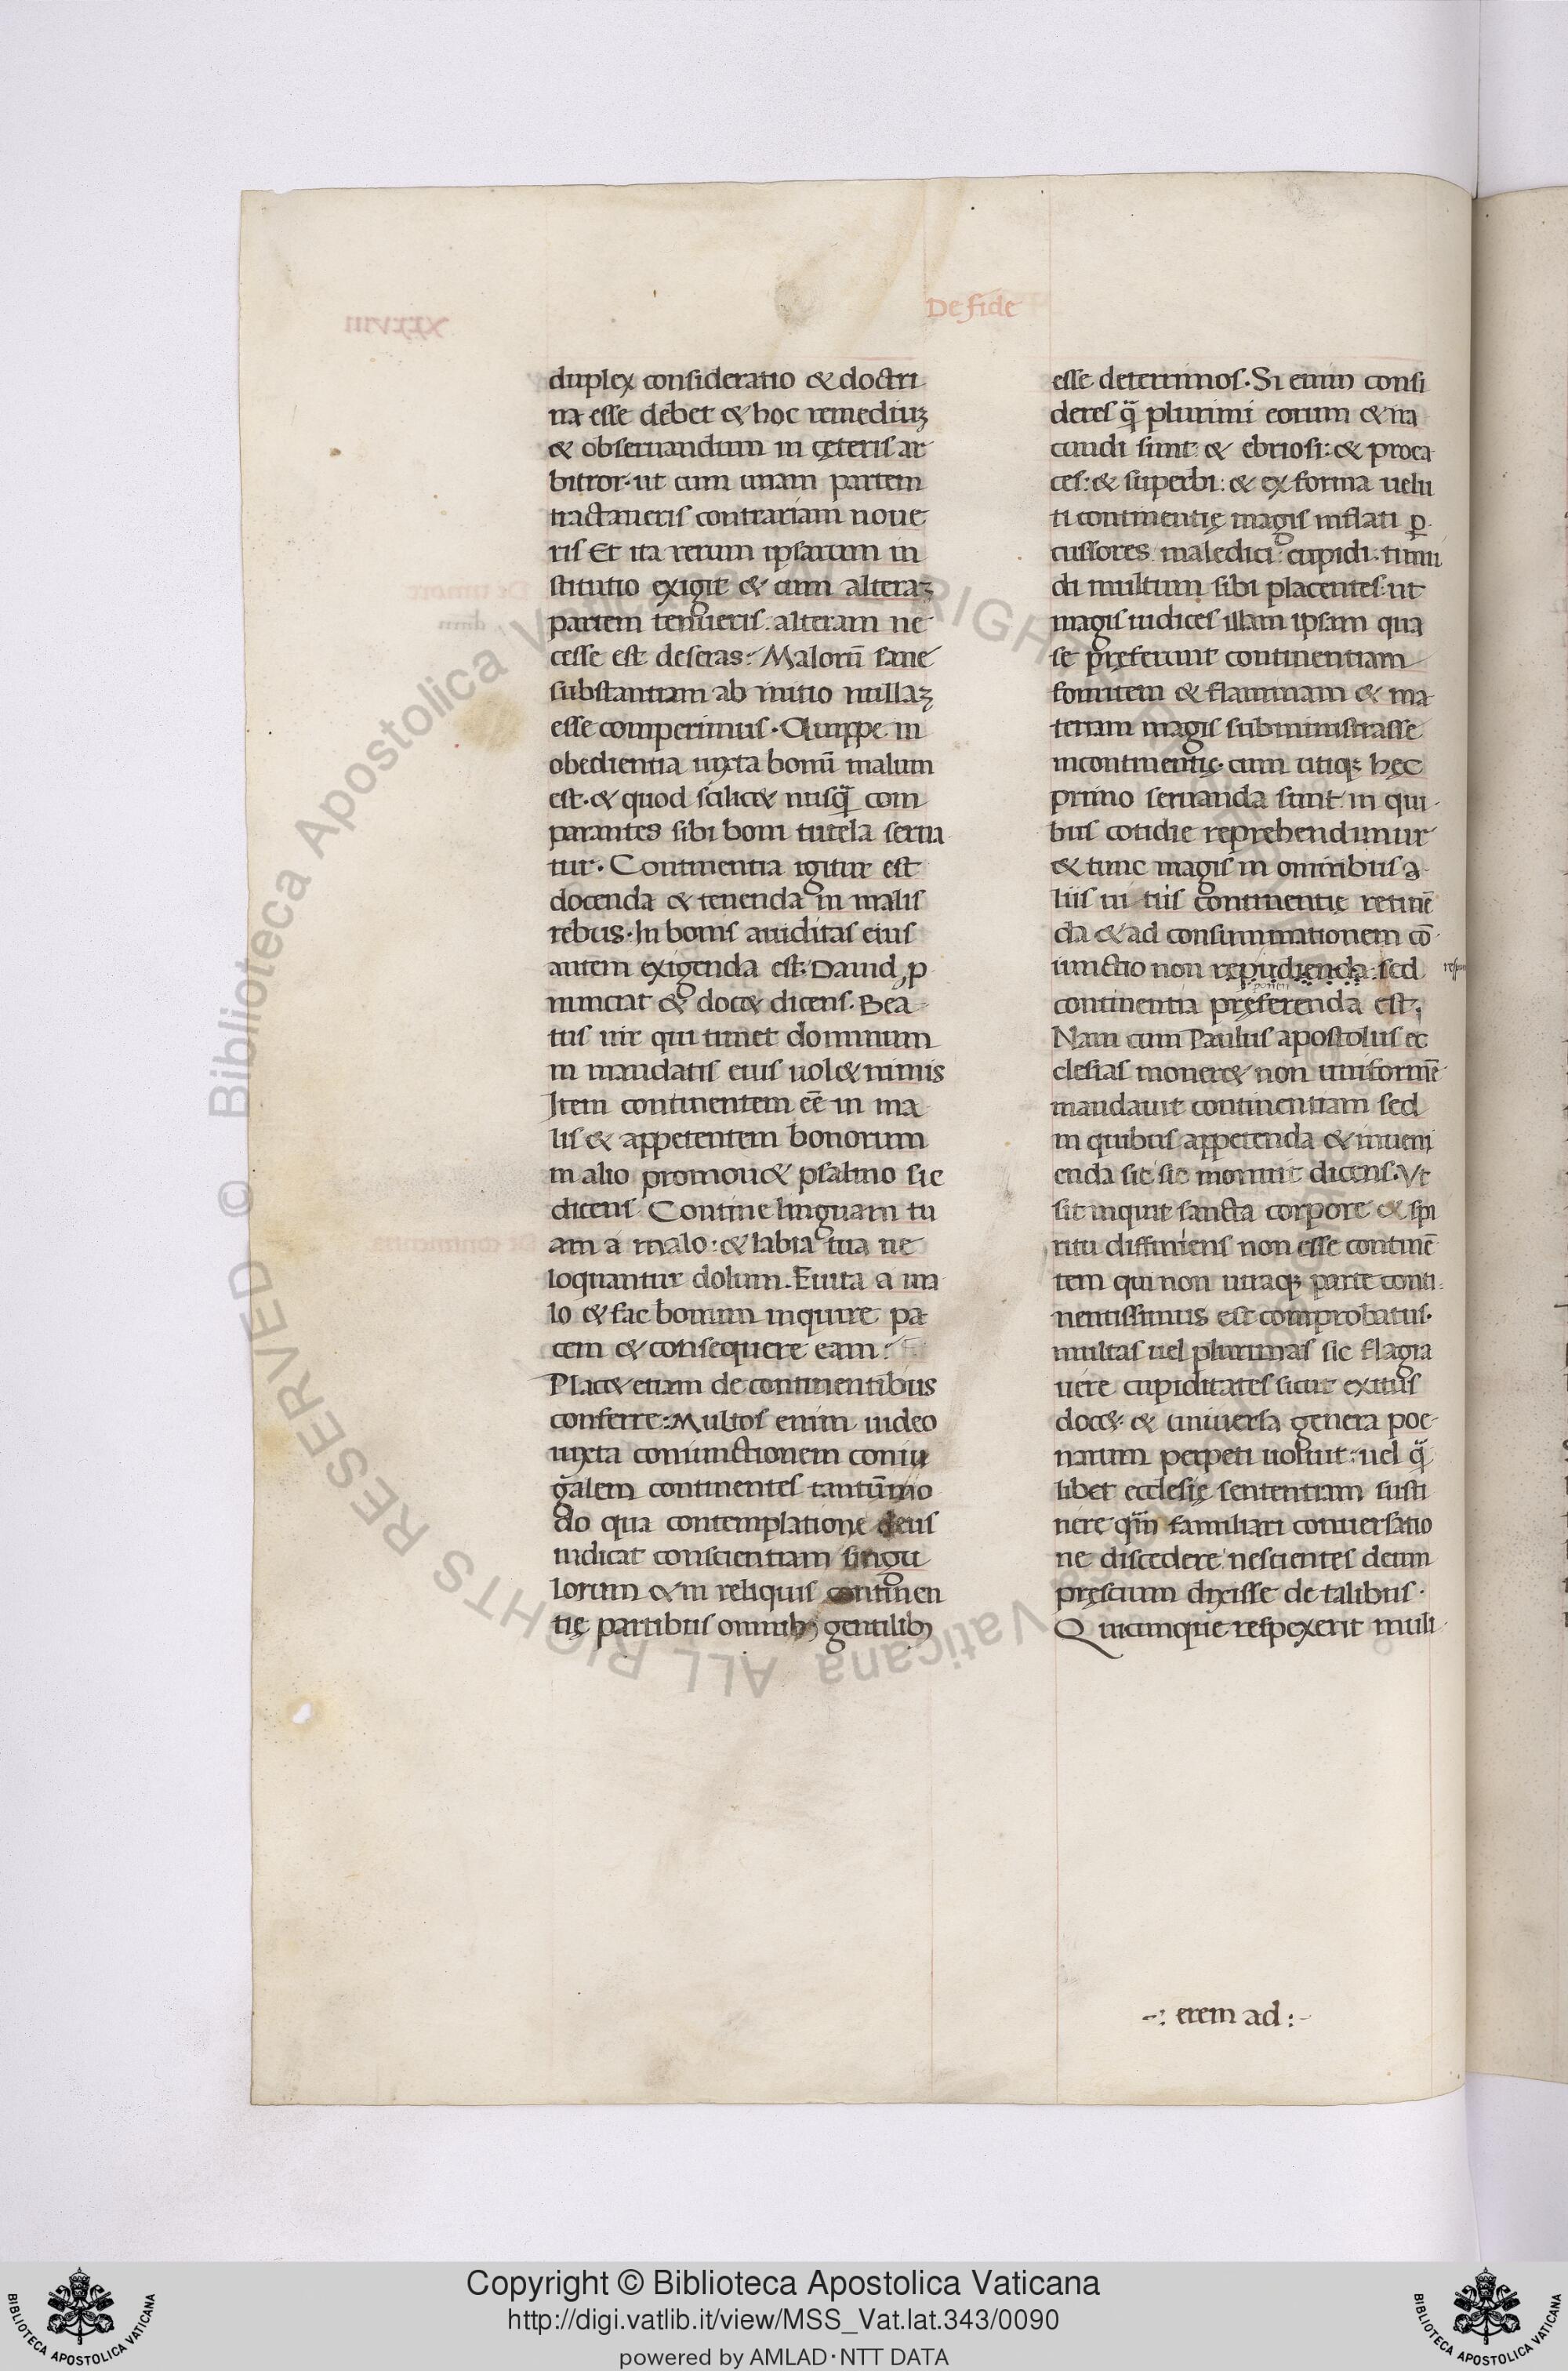 De fide
duplex consideratio & doctri
na esse debet & hoc remediuʒ
& obseruandum in çeteris ar
bitror· ut cum unam partem
tractaueris contrariam noue
ris Et ita rerum ipsarum in
stitutio exigit & cum alteraʒ
partem tenueris. alteram ne
cesse est deseras: Malorū sane
substantiam ab initio nullaʒ
esse comperimus· Quippe in
obedientia iuxta bonū malum
est· & quod scilic& nusq̄ com
parantes sibi boni tutela serua
tur· Continentia igitur est
docenda & tenenda in malis
rebus· In bonis auiditas eius
autem exigenda est· Dauid ꝓ
nunciat & doc& dicens· Bea
tus uir qui timet dominum
in mandatis eius uol& nimis
Item continentem eē in ma
lis & appetentem bonorum
in alio promou& psalmo sic
dicens Contine linguam tu
am a malo: & labia tua ne
loquantur dolum. Euita a ma
lo & fac bonum inquire pa
cem & consequere eam:
Plac& etiam de continentibus
conferre: Multos enim uideo
iuxta coniunctionem coniu
galem continentes tantūmo
do qua contemplatione deus
iudicat conscientiam singu
lorum & in reliquis continen
tię partibus omnibꝫ gentilibꝫ
esse deterrimos· Si enim consi
deres q̄ plurimi eorum & ira
cundi sunt & ebriosi: & proca
ces: & superbi: & ex forma uelu
ti continentię magis inflati ꝑ
cussores maledici: cupidi· timi
di multum sibi placentes: ut
magis iudices illam ipsam qua
se pręferunt continentiam
fomitem & flammam & ma
teriam magis subministrasse
incontinentię· cum utiqꝫ hęc
primo seruanda sunt in qui
bus cotidie reprehendimur
& tunc magis in omnibus a
liis continentię retinē
da & ad consummationem cō
iunctio non repudienda: sed
continentia pręferenda est;
Nam cum Paulus apostolus ec
clesias moner& non uniformē
mandauit continentiam sed
in quibus appetenda & inueni
enda sit sic monuit dicens· Vt
sit inquit sancta corpore & spi
ritu diffiniens non esse continē
tem qui non utraqꝫ parte conti
nentissimus est comprobatus·
multas uel plurimas sic flagra
uere cupiditates sicut exitus
doc&· & uniuersa genera poe
narum perpeti uoluit: uel q̄
libet ecclesię sententiam susti
nere qm̄ familiari conuersatio
ne discedere nescientes deum
pręscium dixisse de talibus·
Quicunque respexerit muli
-: erem ad :-
Copyright © Biblioteca Apostolica Vaticana
http://digi.vatlib.it/view/MSS_Vat.lat.343/0090
powered by AMLAD·NTT DATA